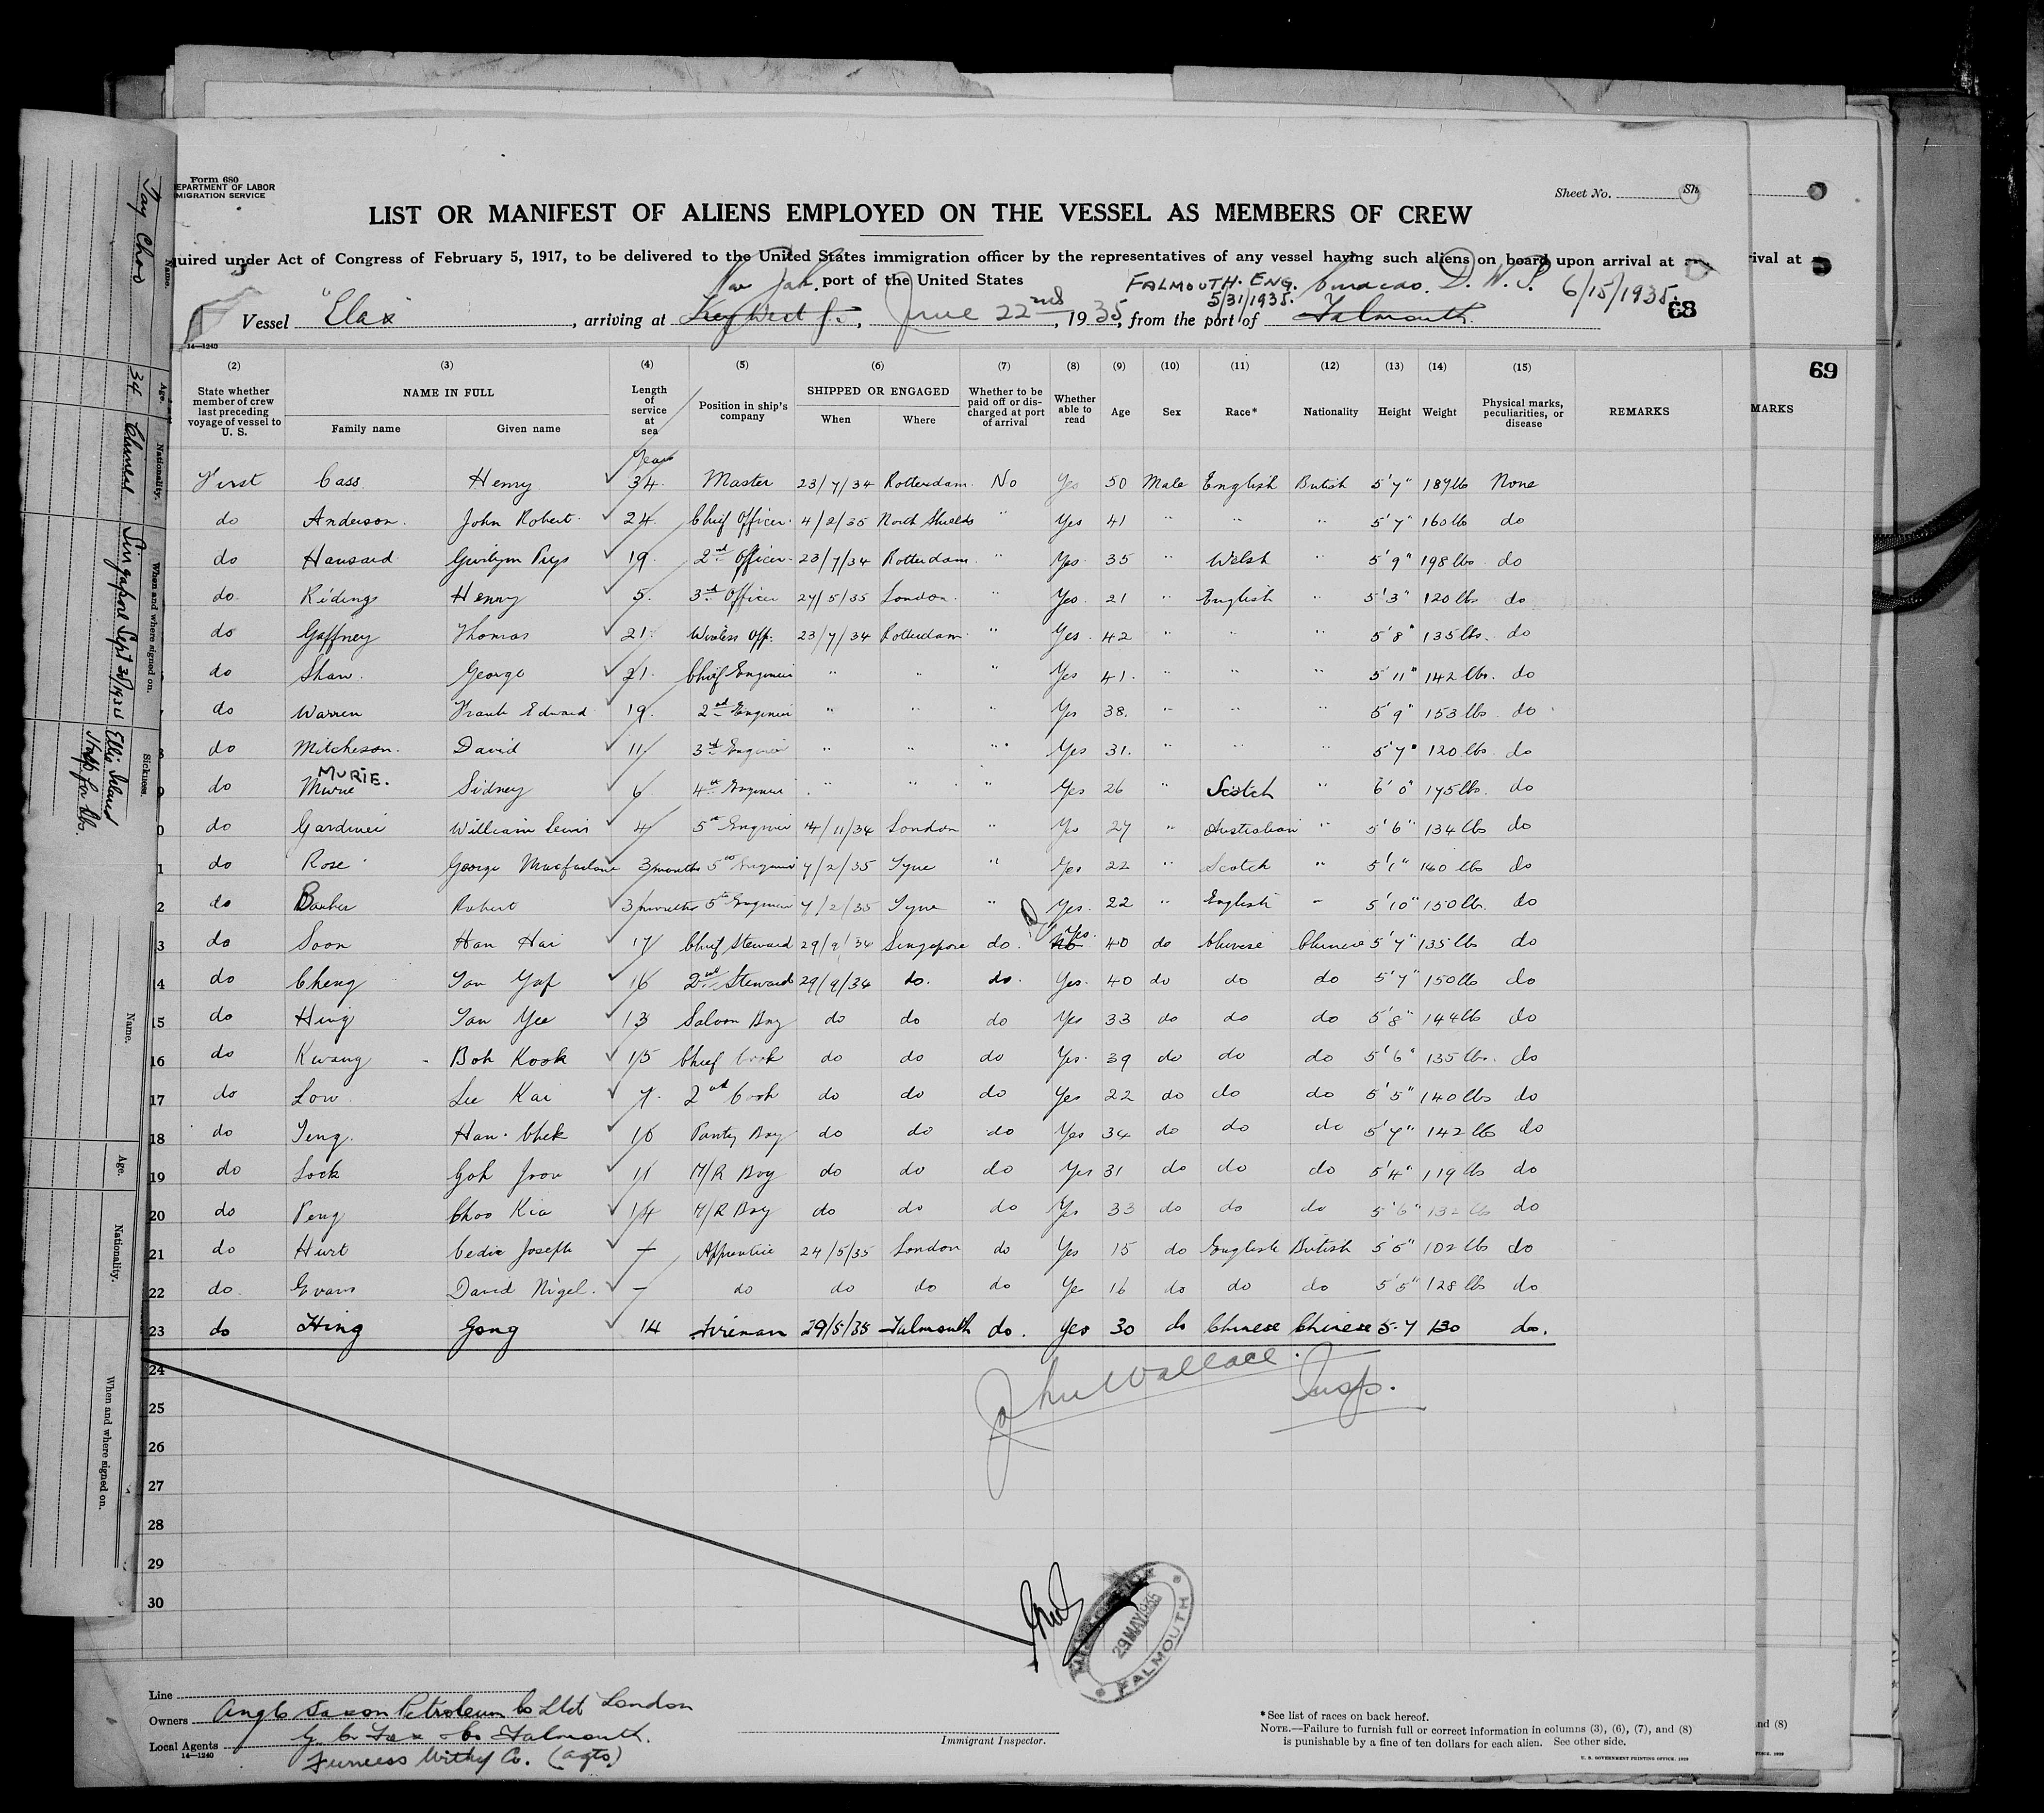 Form 680
DEPARTMENT OF LABOR
IMMIGRATION SERVICE
Sheet No.
LIST OR MANIFEST OF ALIENS EMPLOYED ON THE VESSEL AS MEMBERS OF CREW
quired under Act of Congress of February 5, 1917, to be delivered to the United States immigration officer by the representatives of any vessel having such aliens on board upon arrival at
rival at
port of the United States
FALMOUTH. ENG. Curacao. D. W. I. 6/15/1935.
5/31/1935.
Vessel "Elax", arriving at Key West, June 22nd, 1935, from the port of Falmouth
68
14—1240
(2) (3) (4) (5) (6) (7) (8) (9) (10) (11) (12) (13) (14) (15)
State whether member of crew last preceding voyage of vessel to U. S. NAME IN FULL Family name Given name Length of service at sea Position in ship's company SHIPPED OR ENGAGED When Where Whether to be paid off or discharged at port of arrival Whether able to read Age Sex Race* Nationality Height Weight Physical marks, peculiarities, or disease REMARKS
69
MARKS
Years
First Cass Henry 34 Master 23/7/34 Rotterdam No Yes 50 Male English British 5'7" 187lb None
do Anderson John Robert 24 Chief Officer 4/2/35 North Shields " Yes 41 " " " 5'7" 160lb do
do Hansard Gwilym Prys 19 2nd Officer 23/7/34 Rotterdam " Yes 35 " Welsh " 5'9" 198lbs do
do Ridings Henry 5 3rd Officer 24/5/35 London " Yes 21 " English " 5'3" 120lbs do
do Gaffney Thomas 21 Wireless Opp. 23/7/34 Rotterdam " Yes 42 " " " 5'8" 135lbs. do
do Shaw George 21 Chief Engineer " " " Yes 41 " " " 5'11" 142lbs. do
do Warren Frank Edward 19 2nd Engineer " " " Yes 38 " " " 5'9" 153lbs do
do Mitcheson David 11 3rd Engineer " " " Yes 31 " " " 5'7" 120lbs do
MURIE.
do Murie Sidney 6 4th Engineer " " " Yes 26 " Scotch " 6'0" 175lbs. do
do Gardiner William Lewis 4 5th Engineer 14/11/34 London " Yes 27 " Australian " 5'6" 134lbs do
do Rose George Macfarlane 3 months 5th Engineer 7/2/35 Tyne " Yes 22 " Scotch " 5'1" 140 lbs do
do Barber Robert 3 months 5th Engineer 7/2/35 Tyne " Yes 22 " English - 5'10" 150lb. do
do Soon Han Hai 17 Chief Steward 29/9/34 Singapore do. No Yes. 40 do Chinese Chinese 5'7" 135lb do
do Cheng Tan Yap 16 2nd Steward 29/9/34 do. do. Yes 40 do do do 5'7" 150lb do
15 do Hing Tan Yee 13 Saloon Boy do do do Yes 33 do do do 5'8" 144lb do
16 do Kwang Boh Kook 15 Chief Cook do do do Yes 39 do do do 5'6" 135lbs. do
17 do Low Lee Kai 7 2nd Cook do do do Yes 22 do do do 5'5" 140lbs do
18 do Teng Han Chek 16 Pantry Boy do do do Yes 34 do do do 5'7" 142lb do
19 do Lock Goh Joon 11 M/R Boy do do do Yes 31 do do do 5'4" 119lb do
20 do Peng Choo Kia 14 M/R Boy do do do Yes 33 do do do 5'6" 132 lb do
21 do Hurt Cedic Joseph — Apprentice 24/5/35 London do Yes 15 do English British 5'5" 102lb do
22 do Evans David Nigel. — do do do do Yes 16 do do do 5'5" 128lb do
23 do Hing Gong 14 Fireman 29/5/35 Falmouth do. Yes 30 do Chinese Chinese 5.7 130 do.
24
John Wallace. Insp.
25
26
27
28
29
30
29 MAY 1935
FALMOUTH
Line
Owners Anglo Saxon Petroleum Co Ltd London
Local Agents G. C. Fox & Co Falmouth.
Furness Withy Co. (agts)
14—1240
Immigrant Inspector.
*See list of races on back hereof.
NOTE.—Failure to furnish full or correct information in columns (3), (6), (7), and (8)
is punishable by a fine of ten dollars for each alien. See other side.
U. S. GOVERNMENT PRINTING OFFICE: 1929
nd (8)
Name. Age. Nationality. When and where signed on. Sickness.
Tay Choo 34 Chinese Singapore Sept 30/1934 Ellis Island
Name. Age. Nationality. When and where signed on.